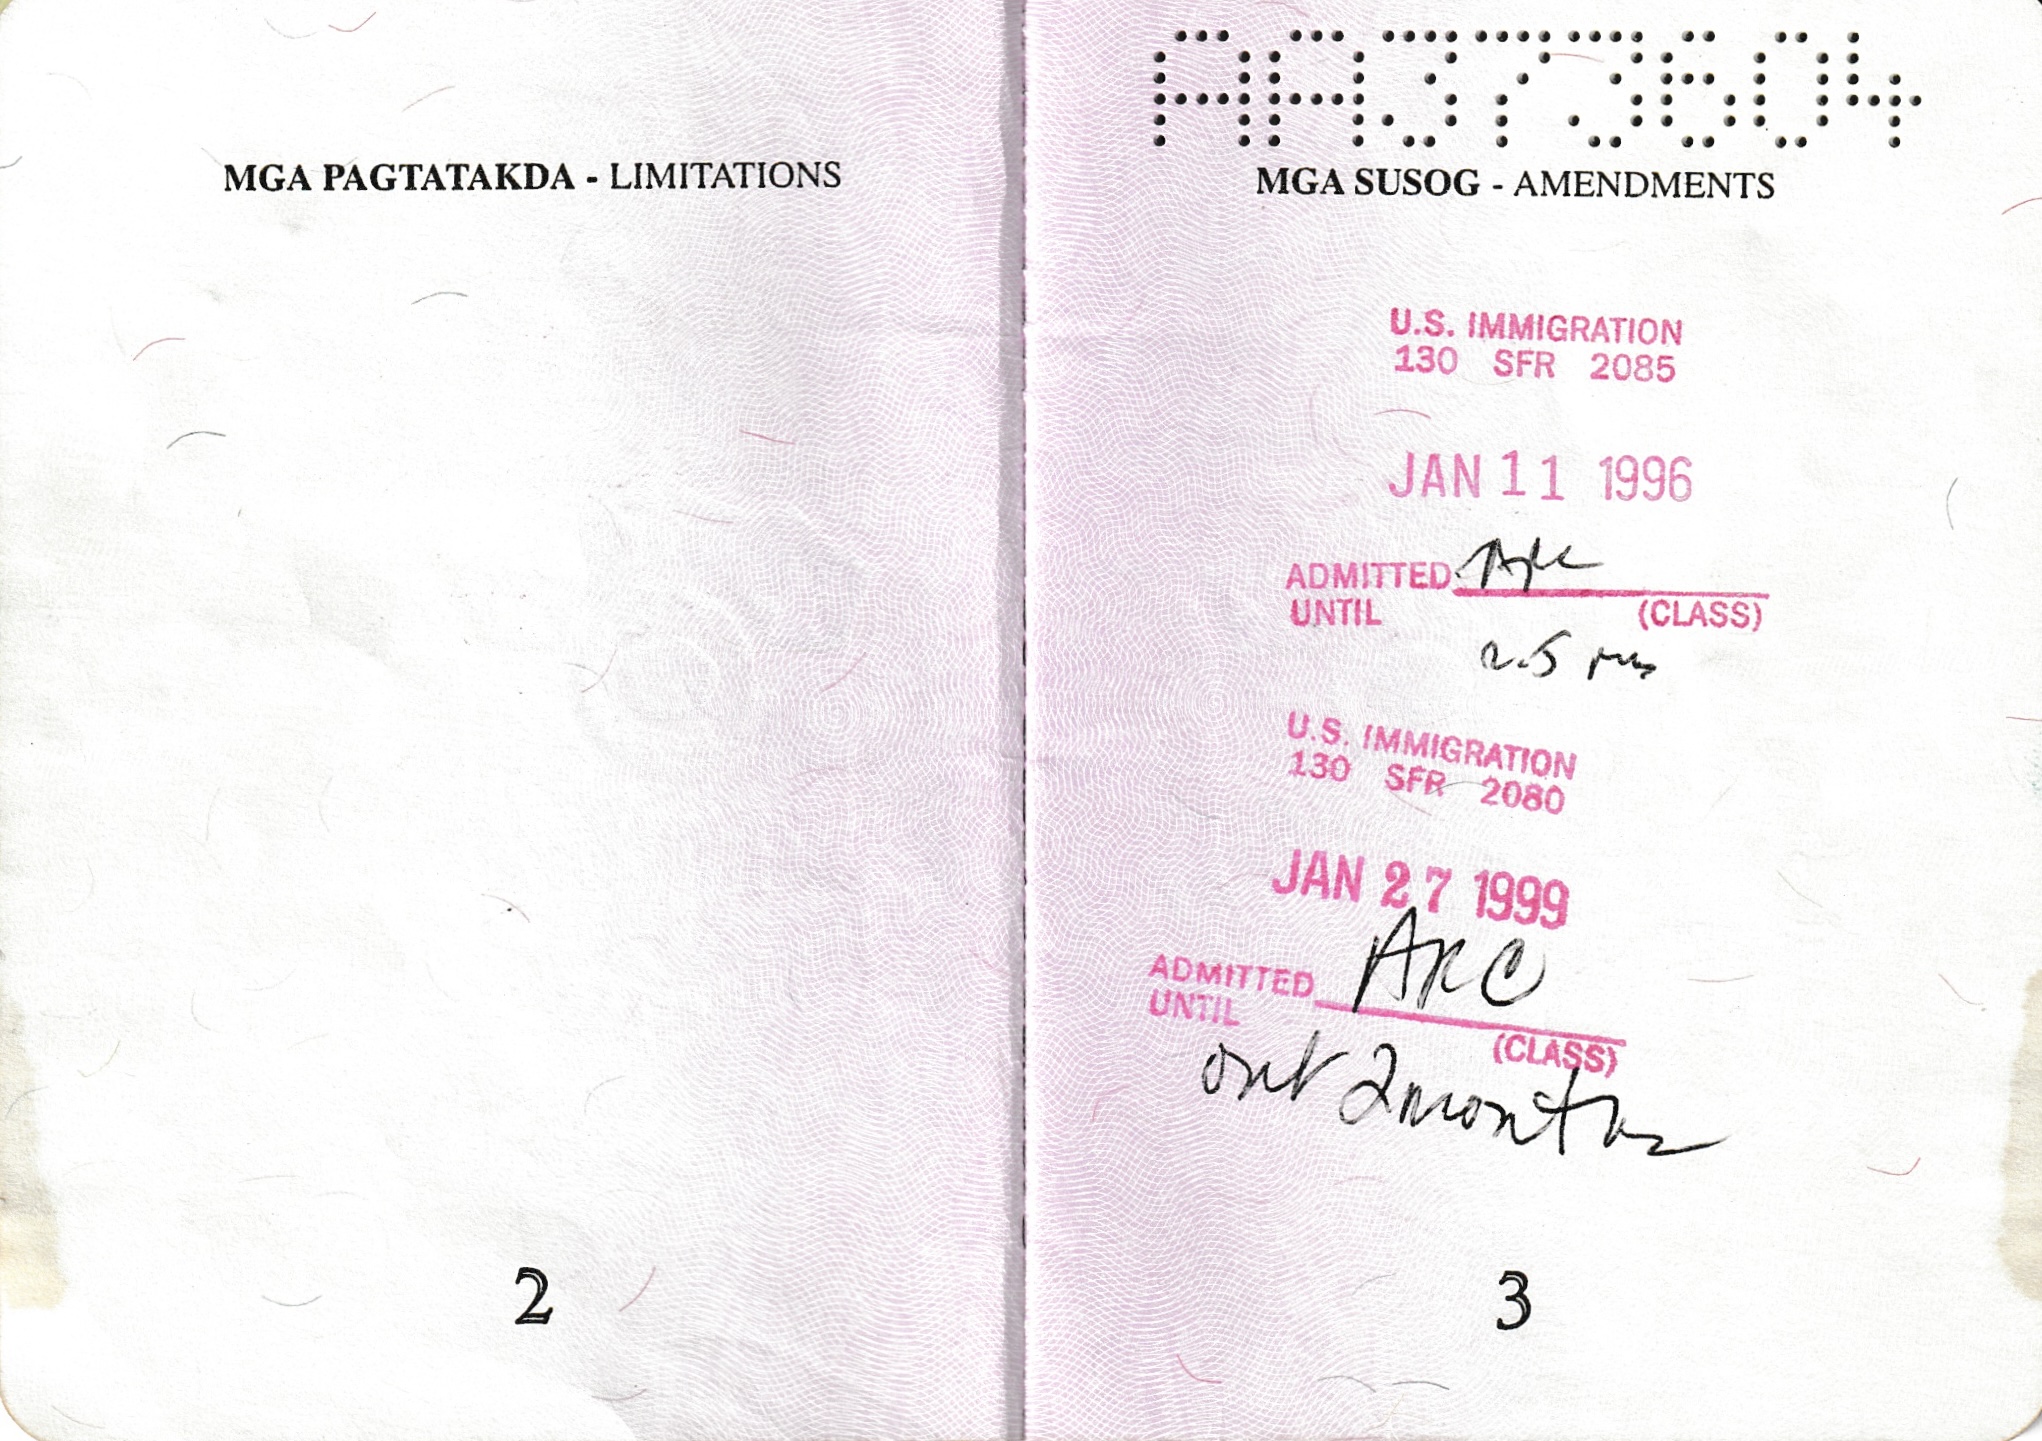 MGA PAGTATAKDA - LIMITATIONS
2
AA373604
MGA SUSOG - AMENDMENTS
U.S. IMMIGRATION
130 SFR 2085
JAN 11 1996
ADMITTED
UNTIL (CLASS)
2.5
U.S. IMMIGRATION
130 SFR 2080
JAN 27 1999
ARC
ADMITTED
UNTIL (CLASS)
out 2 months
3